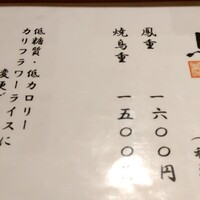 鳳重 一六〇〇円
焼鳥重 一五〇〇円
低糖質・低カロリー
カリフラワーライスに
変更で